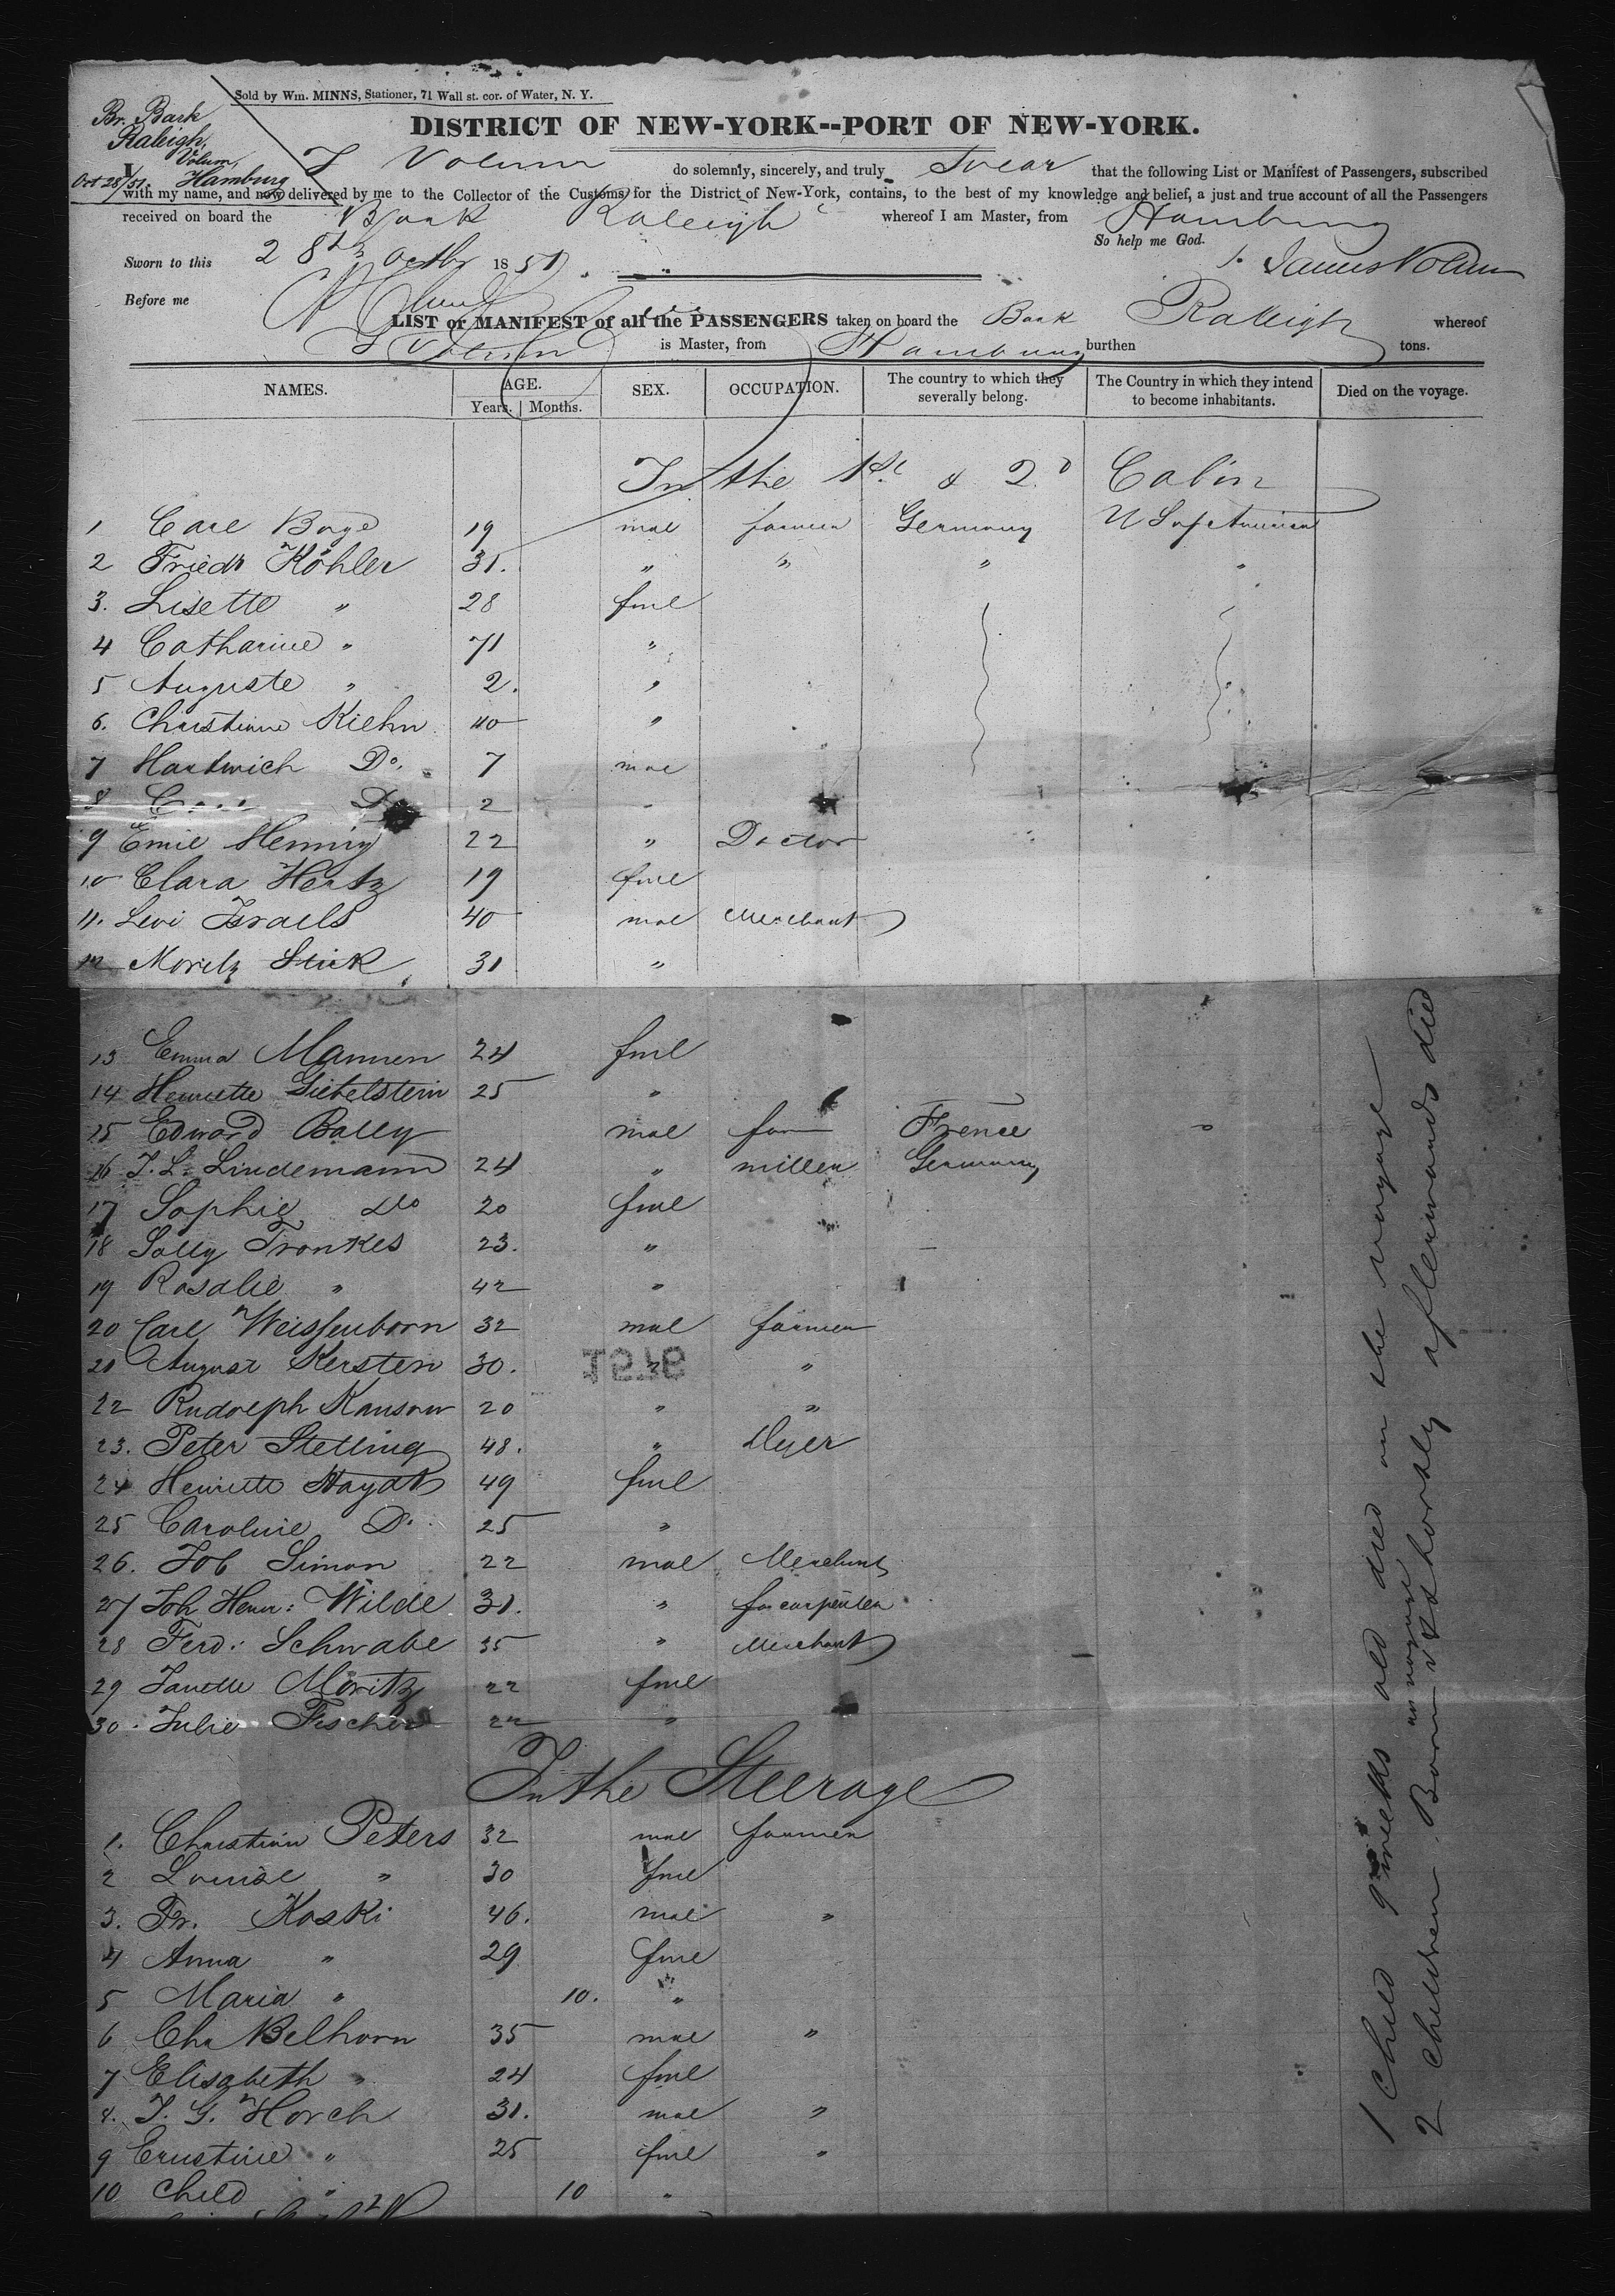 Sold by Wm. MINNS, Stationer, 71 Wall st. cor. of Water, N. Y.
Br. Bark
Raleigh,
Volum,
Hamburg
Oct 28/51
DISTRICT OF NEW-YORK--PORT OF NEW-YORK.
I Volum do solemnly, sincerely, and truly Swear that the following List or Manifest of Passengers, subscribed
with my name, and now delivered by me to the Collector of the Customs for the District of New-York, contains, to the best of my knowledge and belief, a just and true account of all the Passengers
received on board the Bark Raleigh whereof I am Master, from Hamburg
So help me God.
Sworn to this 28th Octbr 1851. James Volum
Before me
LIST or MANIFEST of all the PASSENGERS taken on board the Bark Raleigh whereof
J Volum is Master, from Hamburg burthen tons.
NAMES. AGE. SEX. OCCUPATION. The country to which they severally belong. The Country in which they intend to become inhabitants. Died on the voyage.
Years. Months.
In the 1st & 2d Cabin
1 Carl Boye 19 mal farmer Germany U S of America
2 Friedr Köhler 31. " " " "
3. Lisette " 28 fml
4 Catharine " 71 "
5 Auguste " 2. "
6. Christiane Kiehn 40 "
7 Hartwich Do. 7 mal
8 Do 2 "
9 Emil Henning 22 " Doctor
10 Clara Hertz 19 fml
11. Levi Israels 40 mal Merchant
12 Moritz 31 "
13 Emma Mannen 24 fml
14 Henriette Giebelstein 25 "
15 Edward Bally mal farm Frence "
16 J. L. Lindemann 24 " miller Germany
17 Sophie Do 20 fml
18 Sally Fronkes 23. "
19 Rosalie " 42 "
20 Carl Weissenborn 32 mal farmer
21 August Kersten 30. " "
1576
22 Rudolph Kansow 20 " "
23. Peter Stelling 48. " Dyer
24 Henriette Haydt 49 fml
25 Caroline Do. 25 "
26. Job Simon 22 mal Merchant
27 Joh Henr: Wilde 31. " carpenter
28 Ferd: Schwabe 35 " Merchant
29 Janette Moritz 22 fml
30. Julie Fischer 22 "
In the Steerage
1. Christian Peters 32 mal farmer
2 Louise " 30 fml
3. Fr. Koski 46. mal "
4 Anna " 29 fml
5 Maria " 10. "
6 Chr Belhorn 35 mal "
7 Elisabeth " 24 fml
8. J. G. Horch 31. mal "
9 Ernstine " 25 fml "
10 Child " 10 "
1 Child 9 weeks old died on the voyage
2 Children Born on voyage & shortly afterwards died